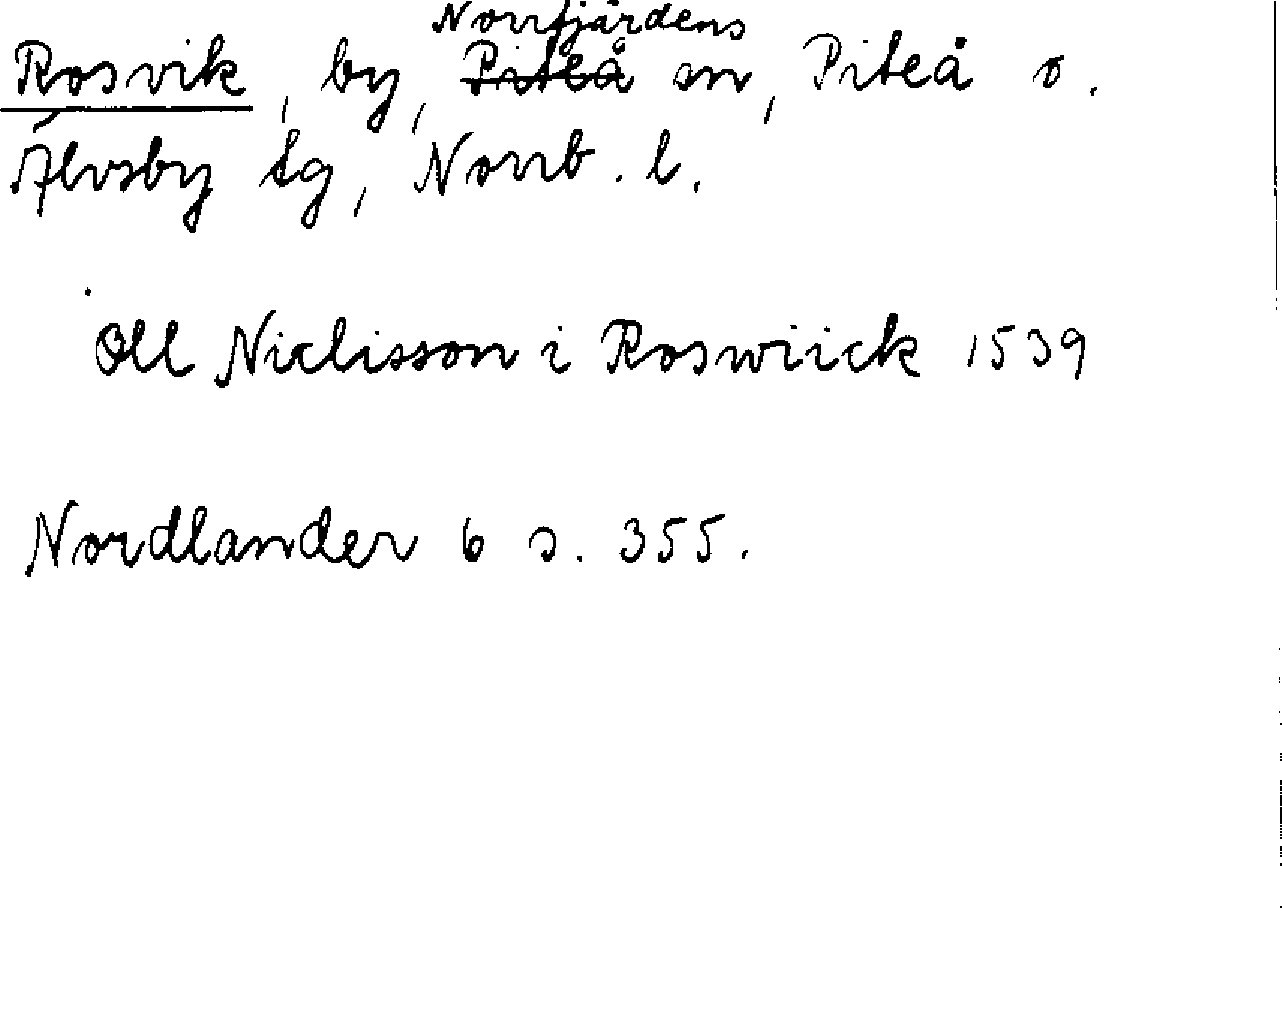 Norrfjärdens
Rosvik, by, Piteå sn, Piteå o.
Älvsby tg, Norrb. l.
Oll Niclisson i Roswiick 1539
Nordlander 6 s. 355.